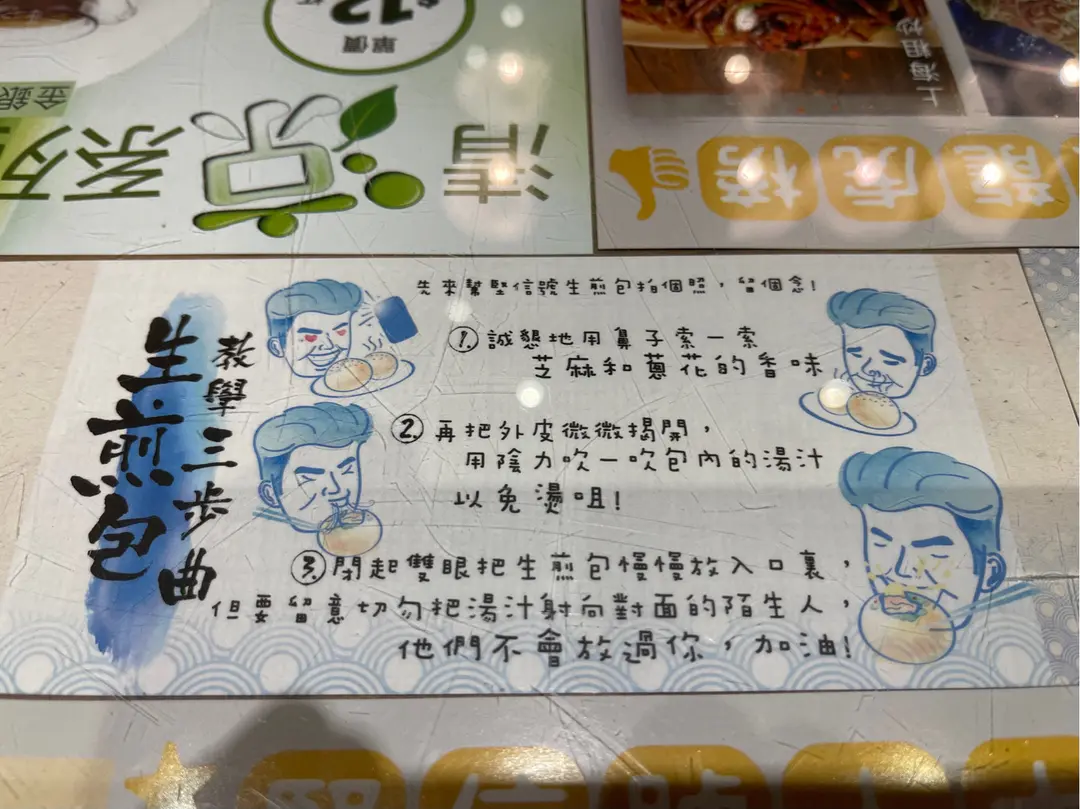 $12
單價
金銀
清涼系列
上海粗炒
龍虎榜
生煎包
教學三步曲
先來幫堅信號生煎包拍個照，留個念！
①.誠懇地用鼻子索一索
芝麻和蔥花的香味
②.再把外皮微微揭開，
用陰力吹一吹包內的湯汁
以免燙咀！
③.閉起雙眼把生煎包慢慢放入口裏，
但要留意切勿把湯汁射向對面的陌生人，
他們不會放過你，加油！